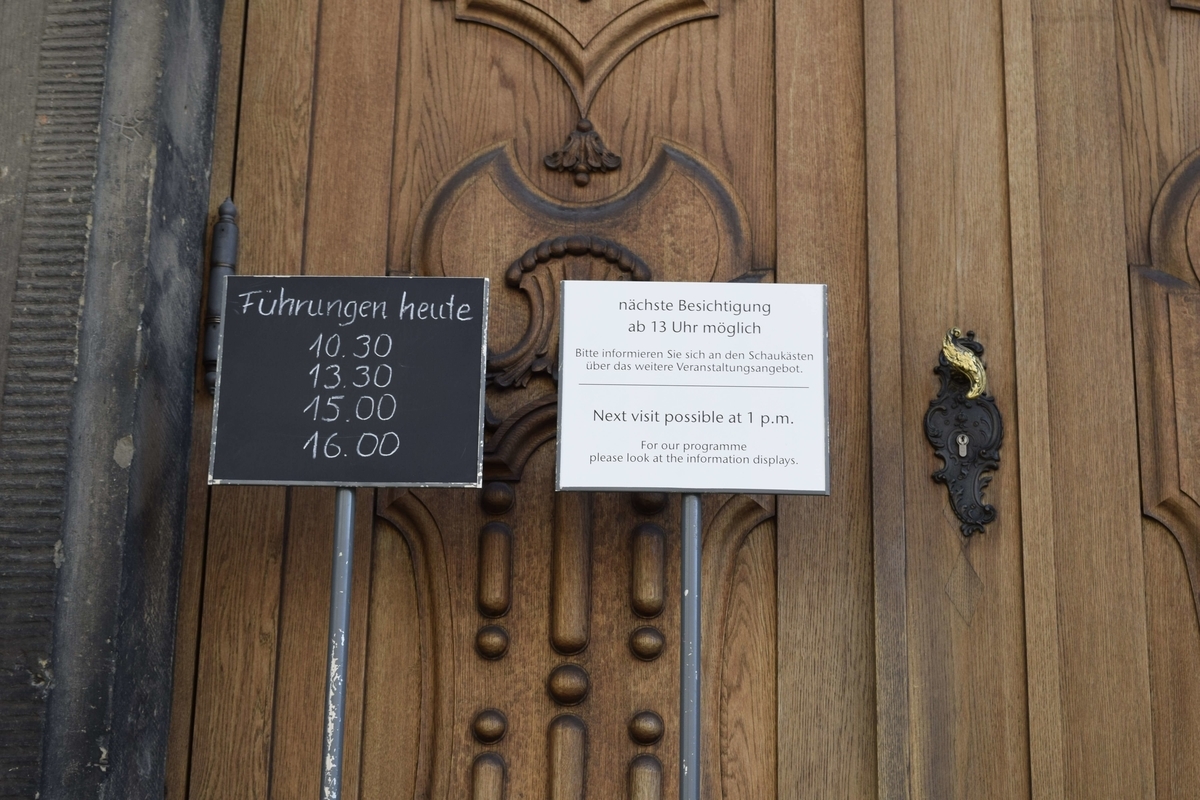 Führungen heute
10.30
13.30
15.00
16.00
nächste Besichtigung
ab 13 Uhr möglich
Bitte informieren Sie sich an den Schaukästen
über das weitere Veranstaltungsangebot.
Next visit possible at 1 p.m.
For our programme
please look at the information displays.